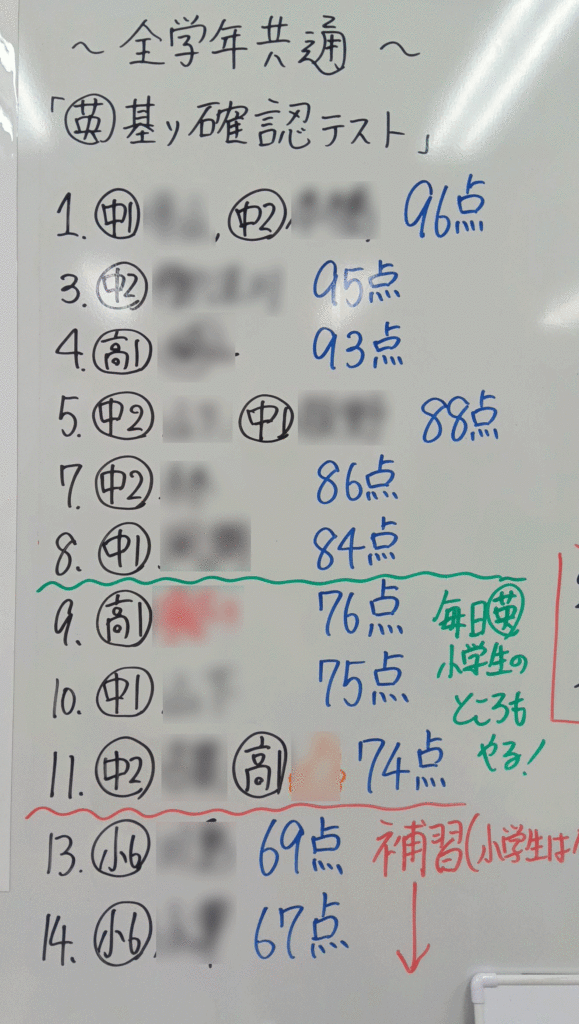 ～全学年共通～
「英基ソ確認テスト」
1. 中1 , 中2 96点
3. 中2 95点
4. 高1 93点
5. 中2 中1 88点
7. 中2 86点
8. 中1 84点
9. 高1 76点
10. 中1 75点
11. 中2 高1 74点
毎日英
小学生の
ところも
やる！
13. 小6 69点 補習(小学生は
14. 小6 67点